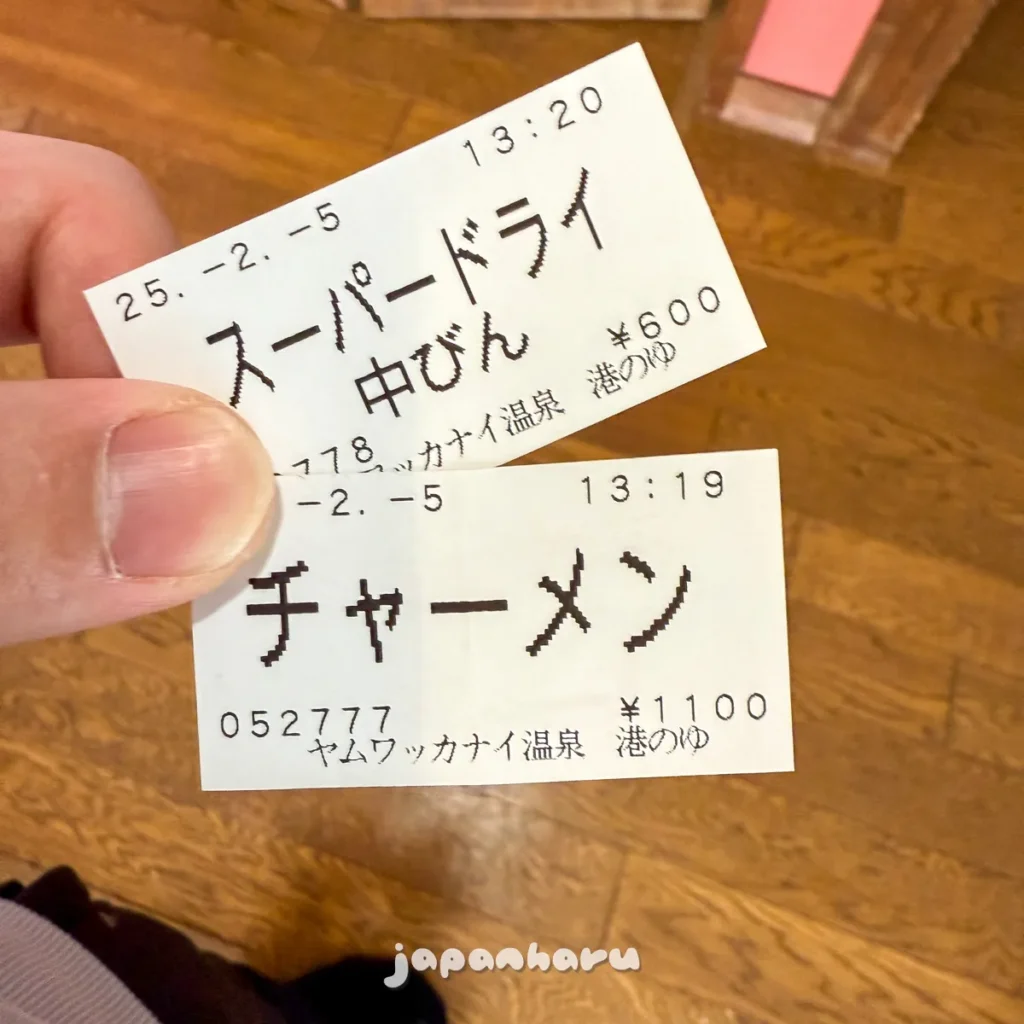 25. -2. -5 13:20
スーパードライ
中びん
¥600
778 ワッカナイ温泉 港のゆ
-2. -5 13:19
チャーメン
052777 ¥1100
ヤムワッカナイ温泉 港のゆ
japanharu